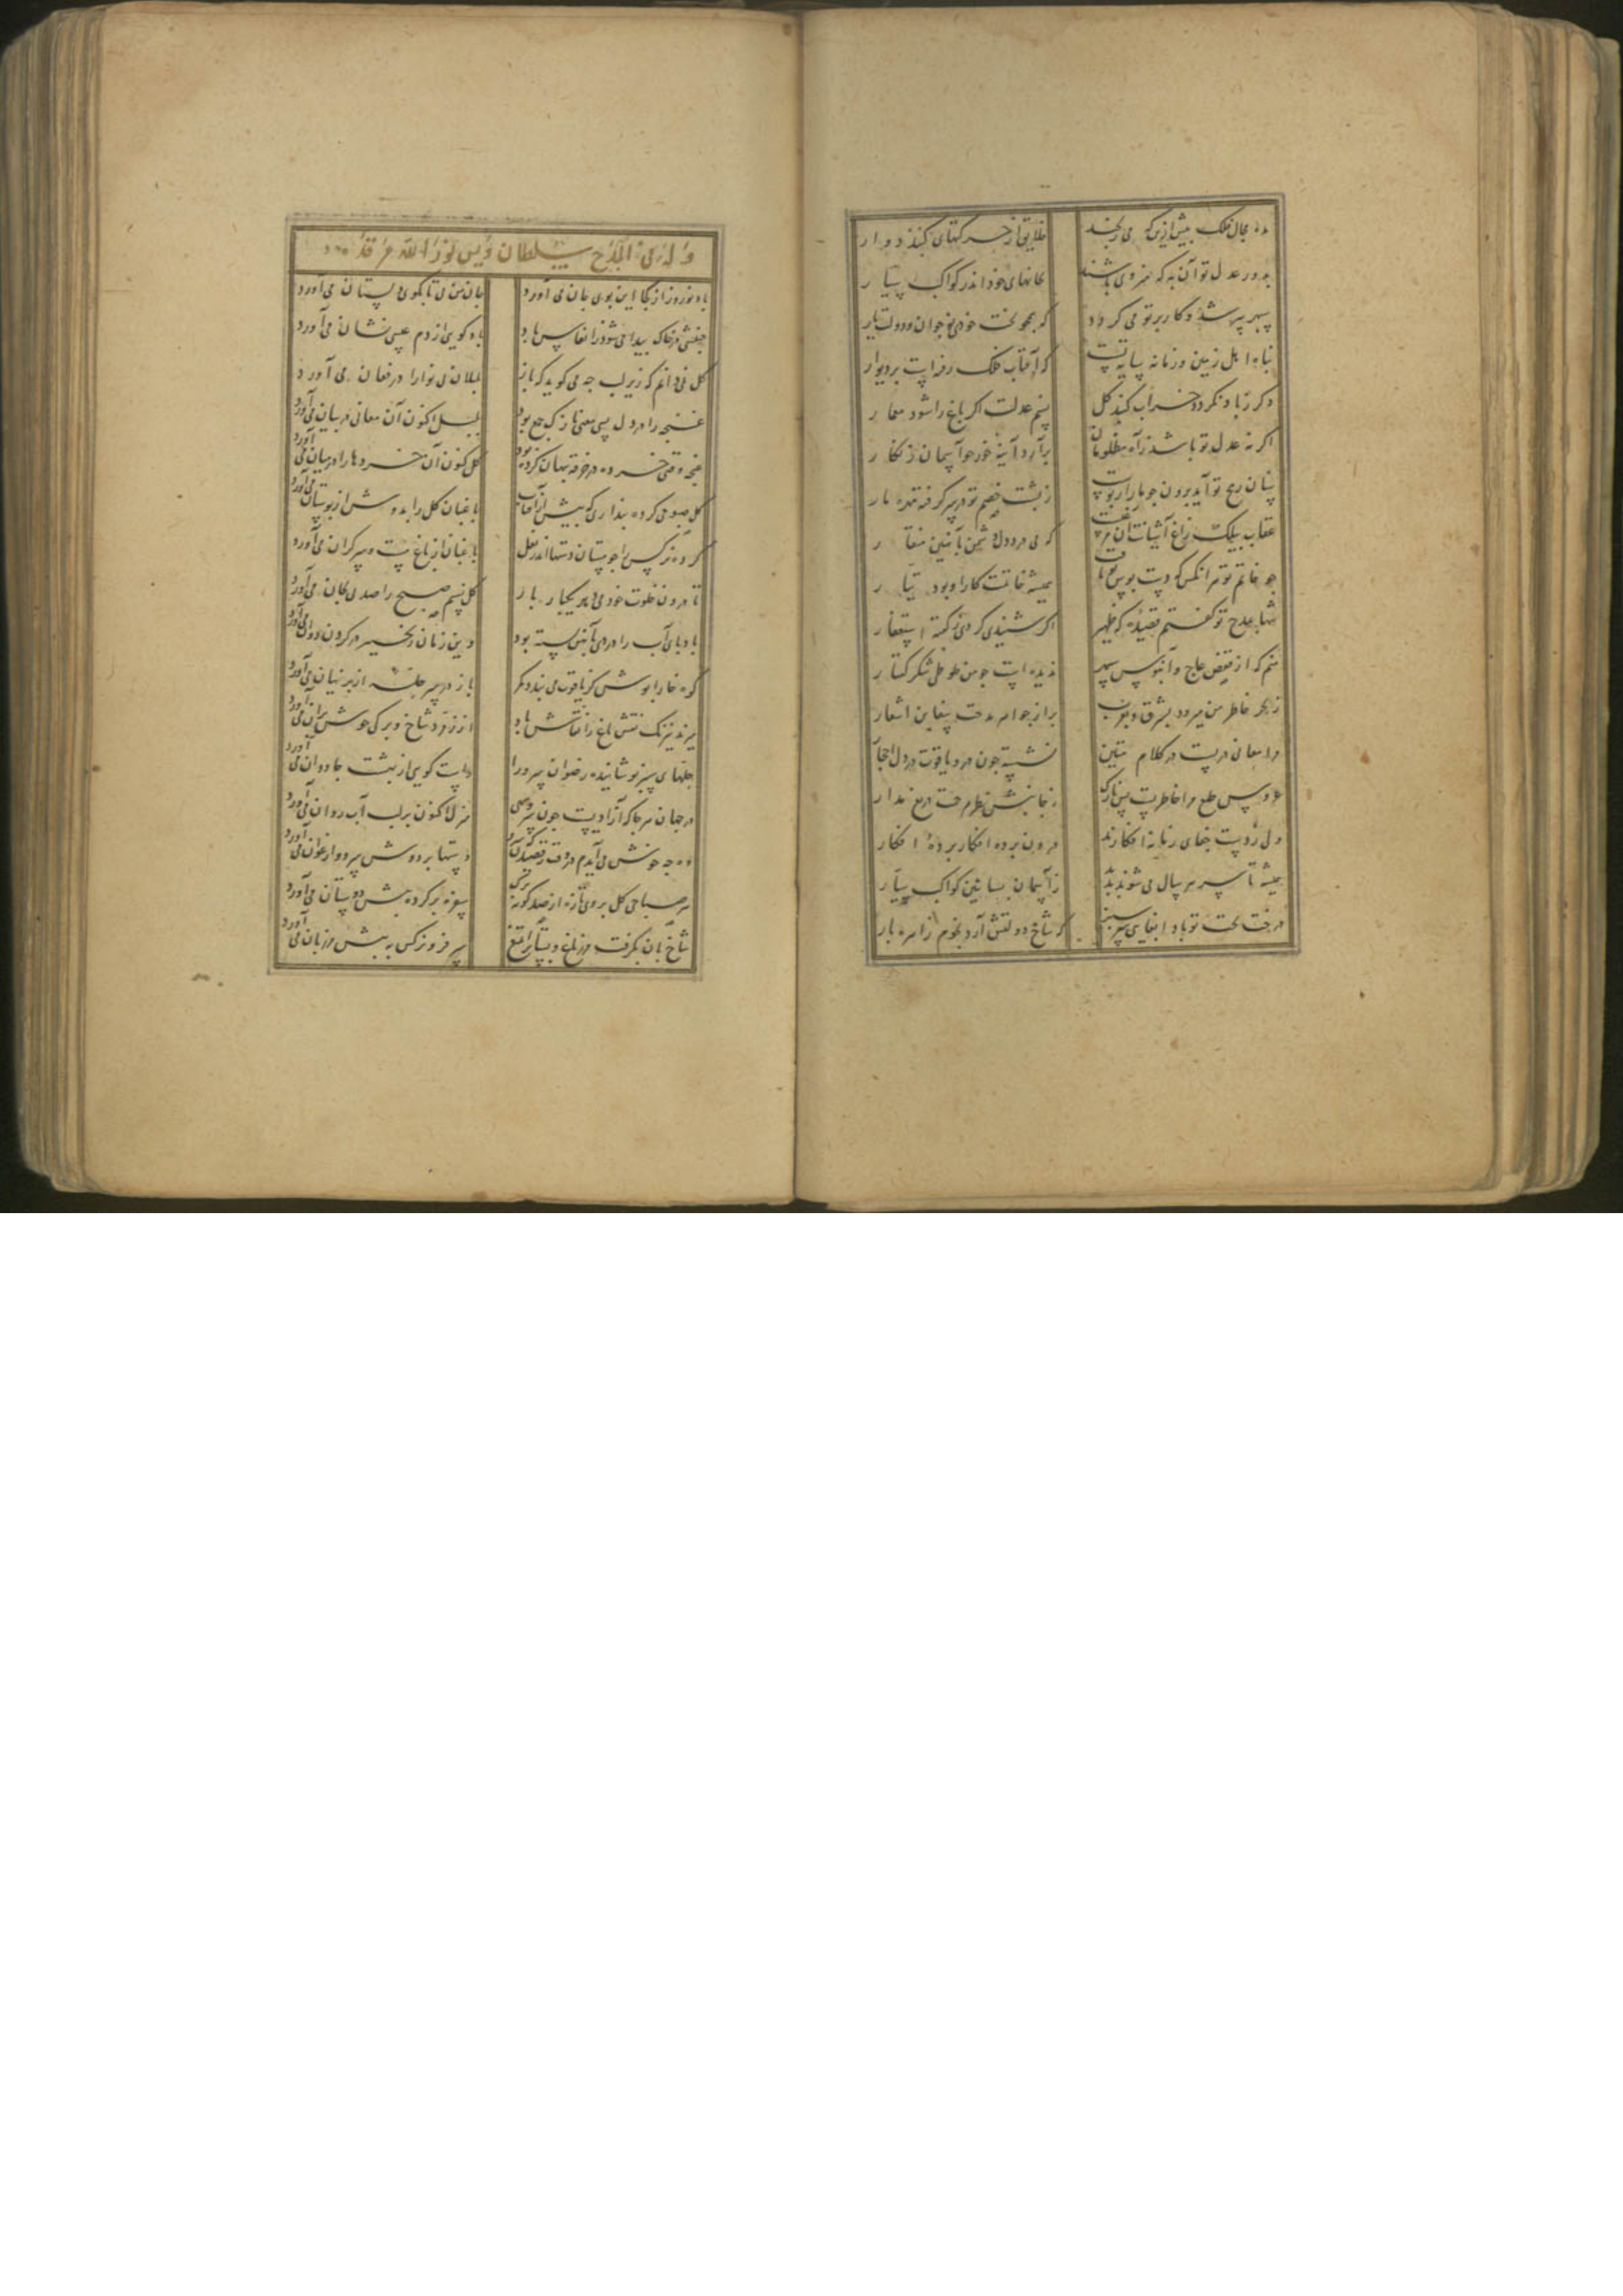 مده مجال فلک بیش ازین که می‌رنجند خلایق از حرکتهای گنبد دوار
بدور عدل تو آن به که منزوی باشند بخانهای خود اندر کواکب سیار
سپهر پیر شد و کار بر تو می‌گردد که همچو بخت خودی نوجوان و دولت یار
پناه اهل زمین و زمانه سایه تست که آفتاب فلک رفته است بر دیوار
دگر ز باد نگردد خراب گنبد گل نسیم عدلت اگر باغ را شود معمار
اگر نه عدل تو باشد ز آه مظلومان برآرد آینه خور چو آسمان زنگار
سنان رمح تو آید برون چو مار از پوست ز پشت خصم تو در سر گرفته مهره مار
عقاب بیلکت زاغ آشیانت آن مرغست که می‌درد دل دشمن بآهنین منقار
چو خاتم تو هر آنکس که دستبوس تو یافت همیشه خاتمت کار او بود تیار
شها بمدح تو گفتم قصیده که ظهیر اگر شنیدی کردی ز گفته استغفار
منم که از قفص عاج و آبنوس سپهر ندیده است چو من طوطی شکر گفتار
ز بحر خاطر من میرود بشرق و بغرب پر از جواهر مدحت سفاین اشعار
مرا معانی درست در کلام متین نشسته چون در و یاقوت در دل احجار
عروس طبع مرا خاطریست بس نازک ز جانبش نظر مرحمت دریغ مدار
ولی ز دست جفای زمانه افکارند درون پرده افکار پرده افکار
همیشه تا بسر هر سال می‌شوند پدید ز آسمان بساتین کواکب سیار
درخت بخت تو باد ابتغایی سرسبز که شاخ دولتش آرد نجوم زاهره بار
وله فی المدح سلطان اویس نور الله مرقده
باد نوروز از کجا این بوی جان می‌آورد جان من پی تا بکوی دلستان می‌آورد
جنبشی در خاک پیدا می‌شود ز انفاس باد باد گویی از دم عیسی نشان می‌آورد
گل نمی‌دانم که زیر لب چه می‌گوید که باز بلبلان بی‌نوا را در فغان می‌آورد
غنچه را در دل بسی معنی نازک جمع بود بلبل اکنون آن معانی در بیان می‌آورد
غنچه وقتی خرده در خرقه پنهان کرده بود گل کنون آن خردها را در میان می‌آورد
گل صبوحی کرده پنداری که پیش از آفتاب باغبان گل را بدوش از بوستان می‌آورد
کرده نرگس را چو مستان دستها اندر بغل باغبان از باغ مست و سرگران می‌آورد
تا درون خلوت خود می‌دهد یکبار بار گل نسیم صبح را صد پی بجان می‌آورد
باد پای آب را در دی بآهن بسته بود وین زمان زنجیر در گردن دوان می‌آورد
کوه خارا پوش کز یاقوت می‌بندد کمر باز در سر جلّه از پرنیان می‌آورد
از زمرد شاخ و برگی خوش بران می‌آورد
حلهای سبز پوشانیده رضوان سرو را راست گویی از بهشت جاودان می‌آورد
در جهان هر جا که آزادیست چون سرو سهی منزل اکنون بر لب آب روان می‌آورد
وه چه خوش می‌آیدم در وقت رقصیدن که سرو دستها بر دوش سرو و ارغوان می‌آورد
هر صباحی گل بروی تازه از صد گونه برگ سفره پر کرده پیش دوستان می‌آورد